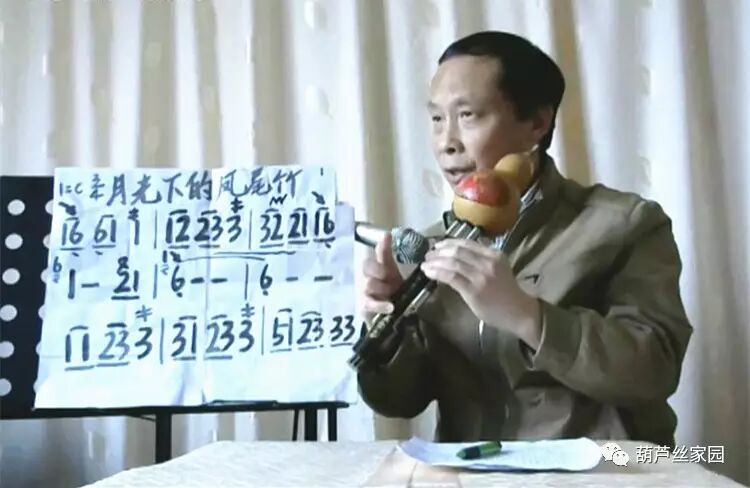 1=C 3/4 月光下的凤尾竹
16 61 1 | 12 23 3 | 32 21 16
1 - 21 | 6 - - | 6 - -
11 23 3 | 31 23 3 | 51 23 33
葫芦丝家园